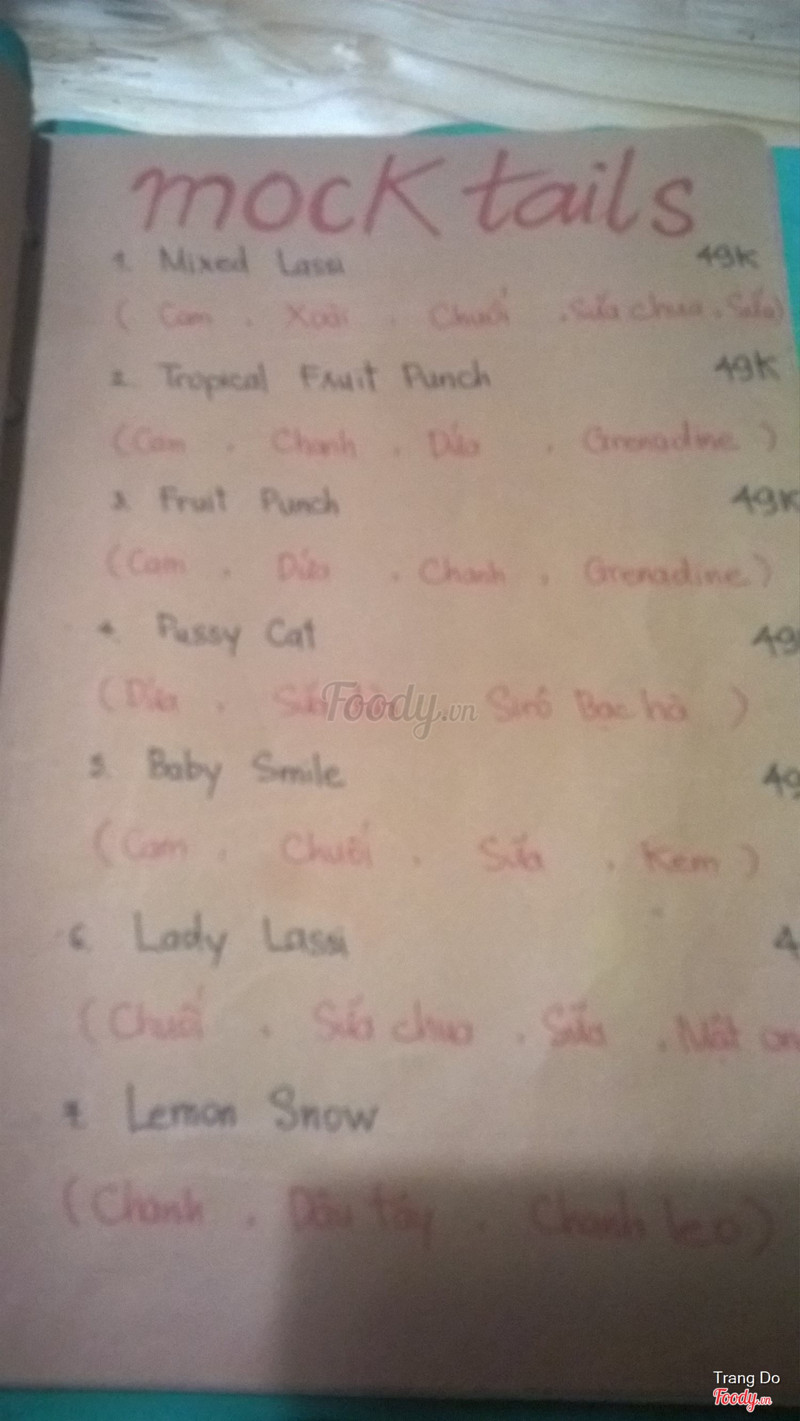 mocktails
1. Mixed Lassi 49K
( Cam , Xoài , Chuối , Sữa chua , Sữa)
2. Tropical Fruit Punch 49K
(Cam , Chanh , Dứa , Grenadine )
3. Fruit Punch 49K
(Cam , Dứa , Chanh , Grenadine )
4. Pussy Cat 49
(Dứa , Sirô Bạc hà )
Foody.vn
5. Baby Smile 49
(Cam , Chuối , Sữa , Kem )
6. Lady Lassi 4
(Chuối , Sữa chua , Sữa , Mật on
7. Lemon Snow
(Chanh , Dâu tây , Chanh leo)
Trang Do
Foody.vn